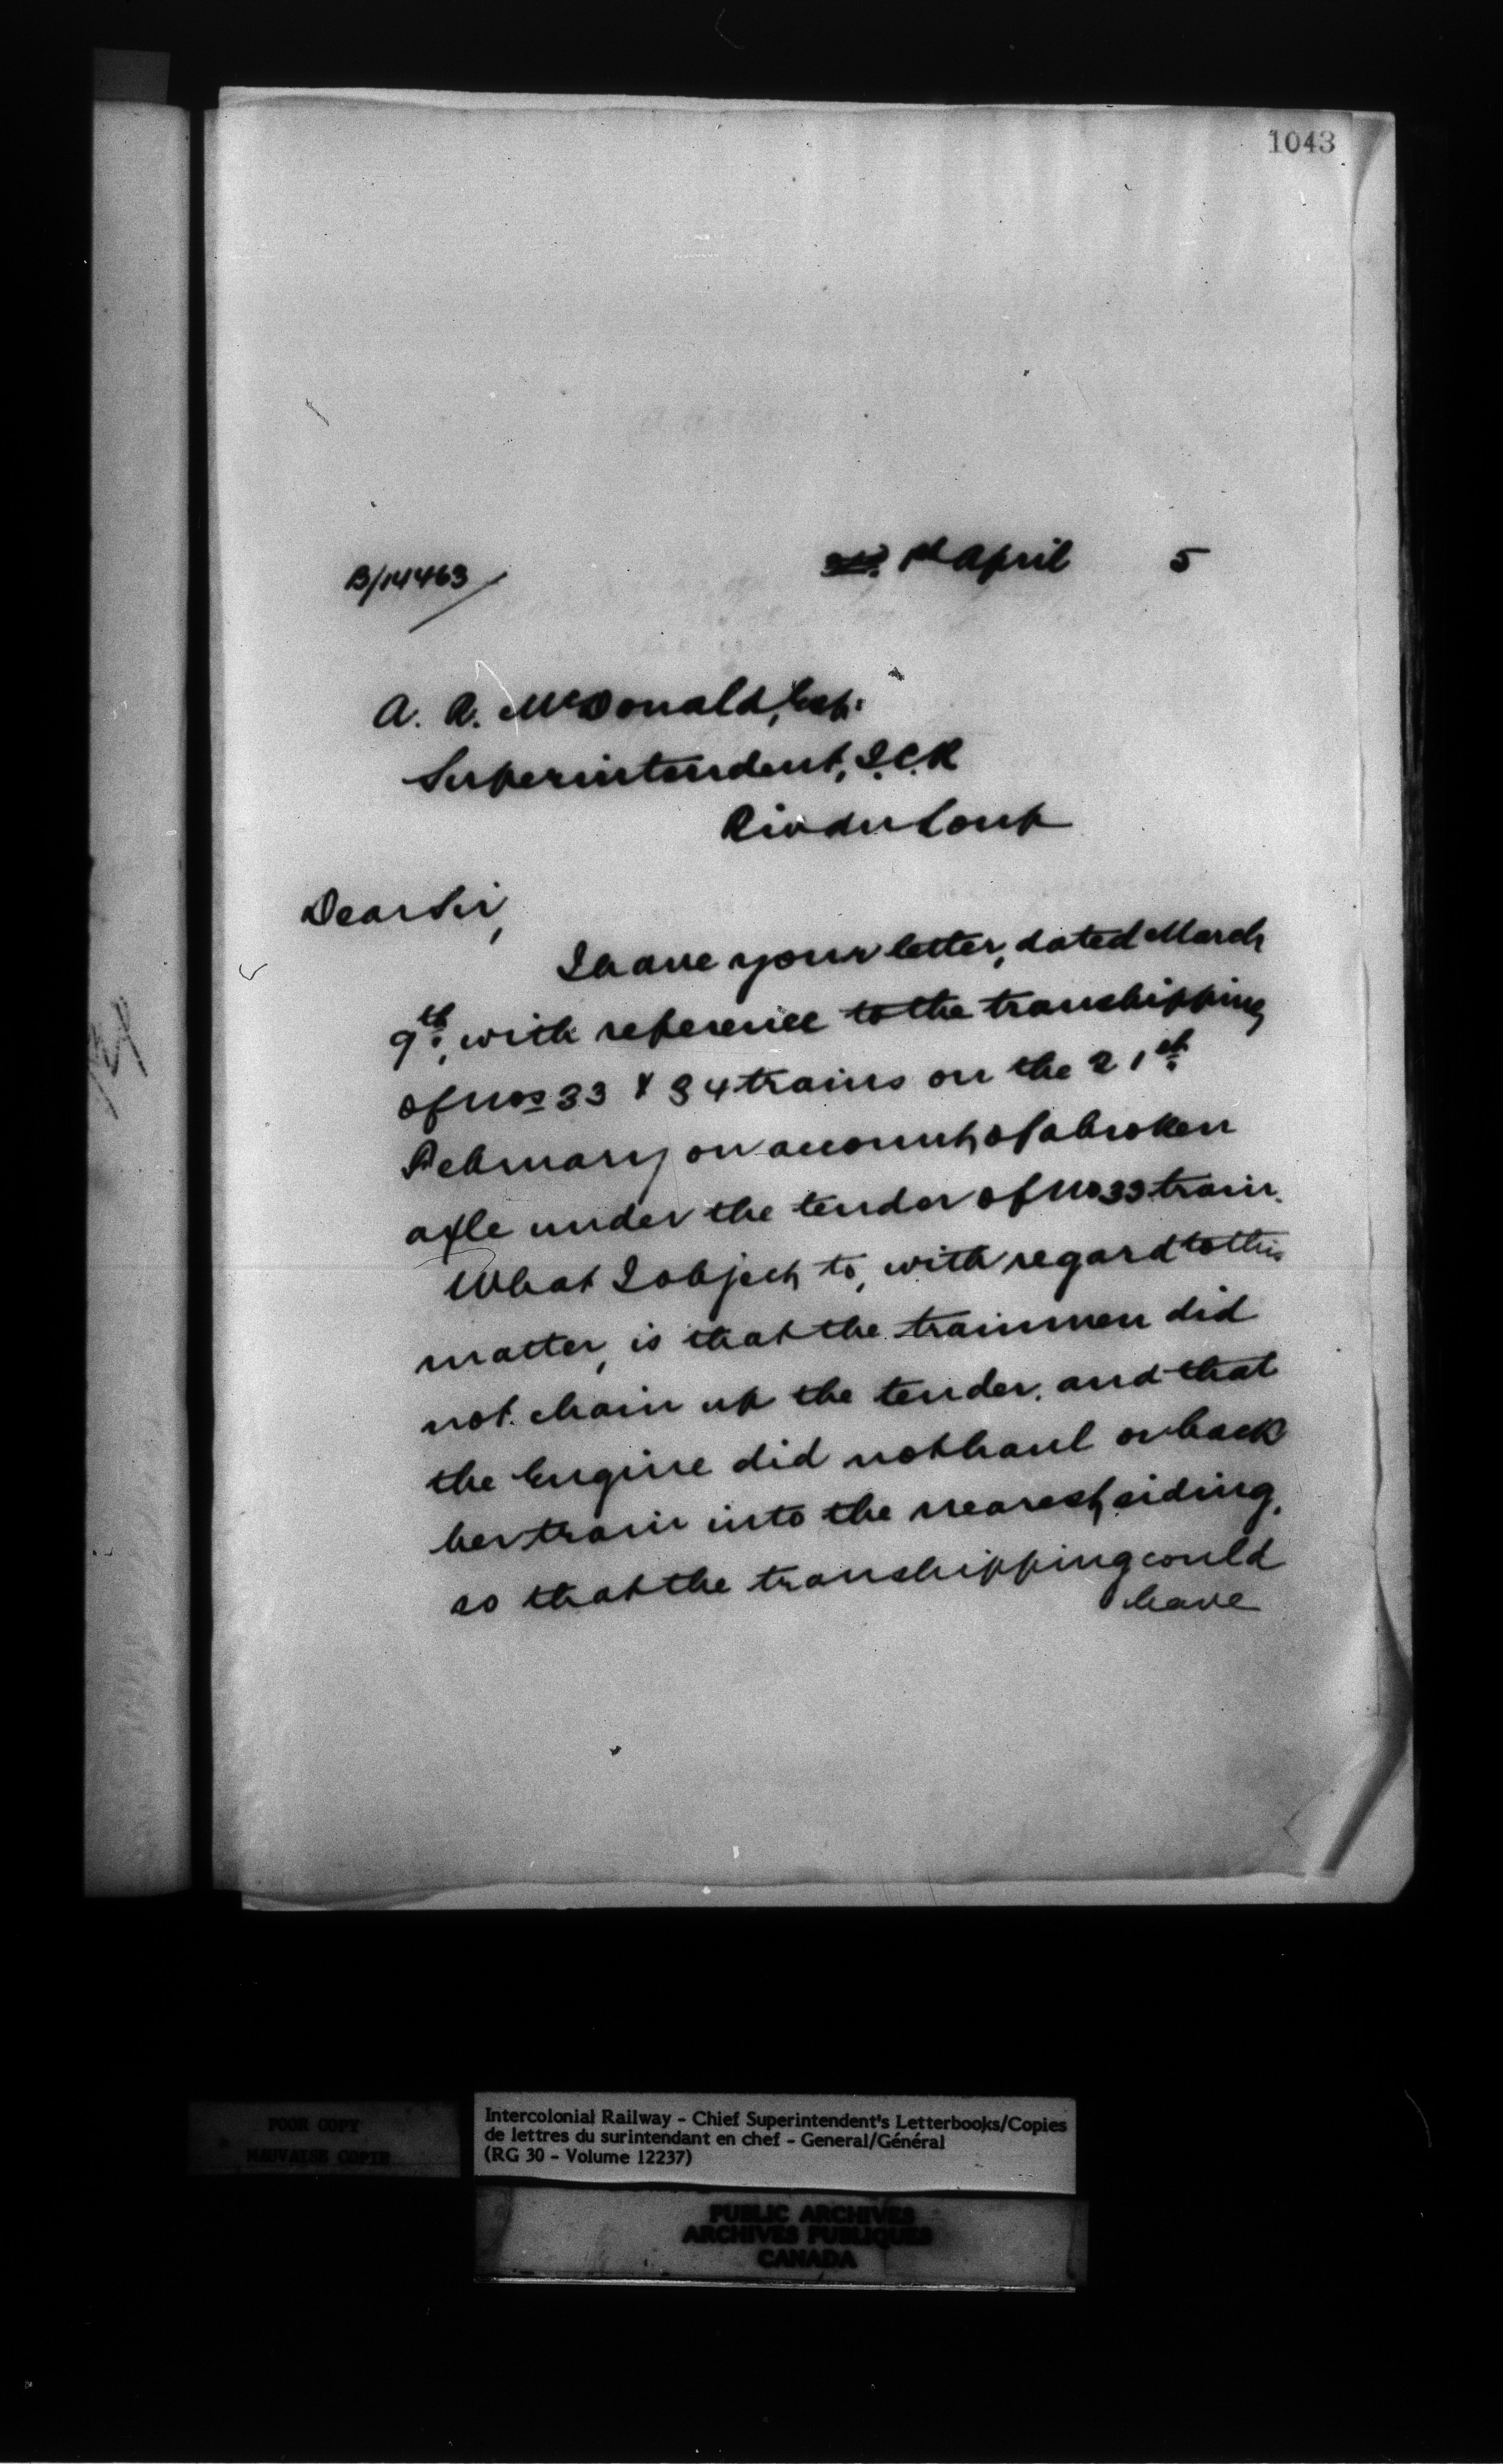 1043
B/14463
1st April 5
A. R. McDonald, Esq.
Superintendent, I.C.R
Riv du Loup
Dear Sir,
I have your letter, dated March
9th, with reference to the transhipping
of Nos 33 & 34 trains on the 21st
February on account of a broken
axle under the tender of No 33 train.
What I object to, with regard to this
matter, is that the trainmen did
not chain up the tender, and that
the Engine did not haul or back
her train into the nearest siding,
so that the transhipping could
have
POOR COPY
MAUVAISE COPIE
Intercolonial Railway - Chief Superintendent's Letterbooks/Copies
de lettres du surintendant en chef - General/Général
(RG 30 - Volume 12237)
PUBLIC ARCHIVES
ARCHIVES PUBLIQUES
CANADA